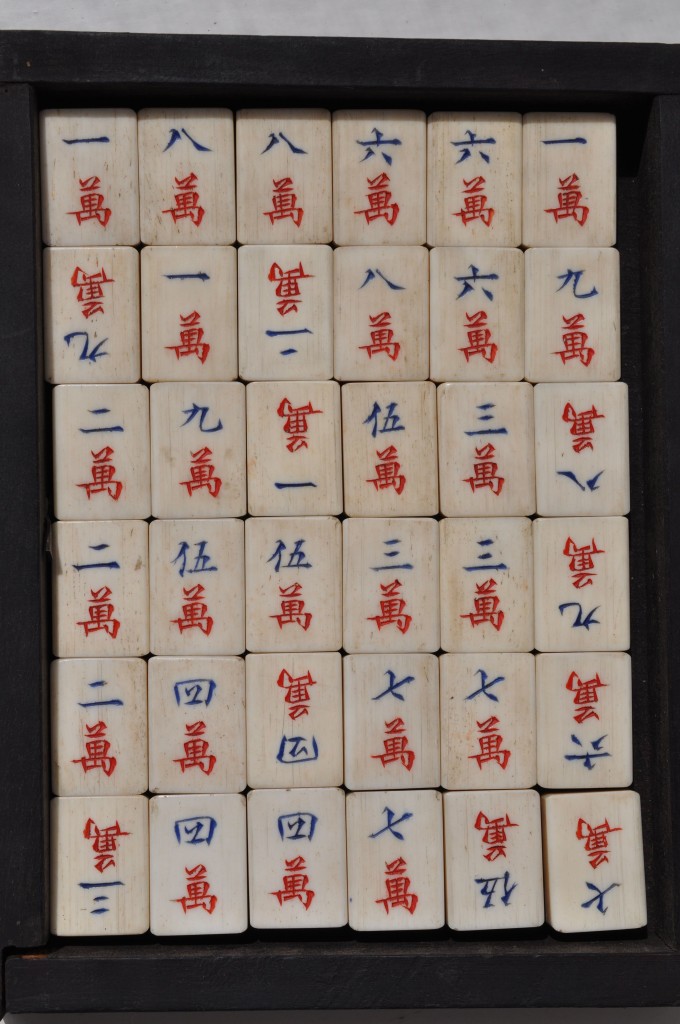 一萬 八萬 八萬 六萬 六萬 一萬
九萬 一萬 二萬 八萬 六萬 九萬
二萬 九萬 一萬 伍萬 三萬 八萬
二萬 伍萬 伍萬 三萬 三萬 九萬
二萬 四萬 四萬 七萬 七萬 六萬
三萬 四萬 四萬 七萬 伍萬 七萬